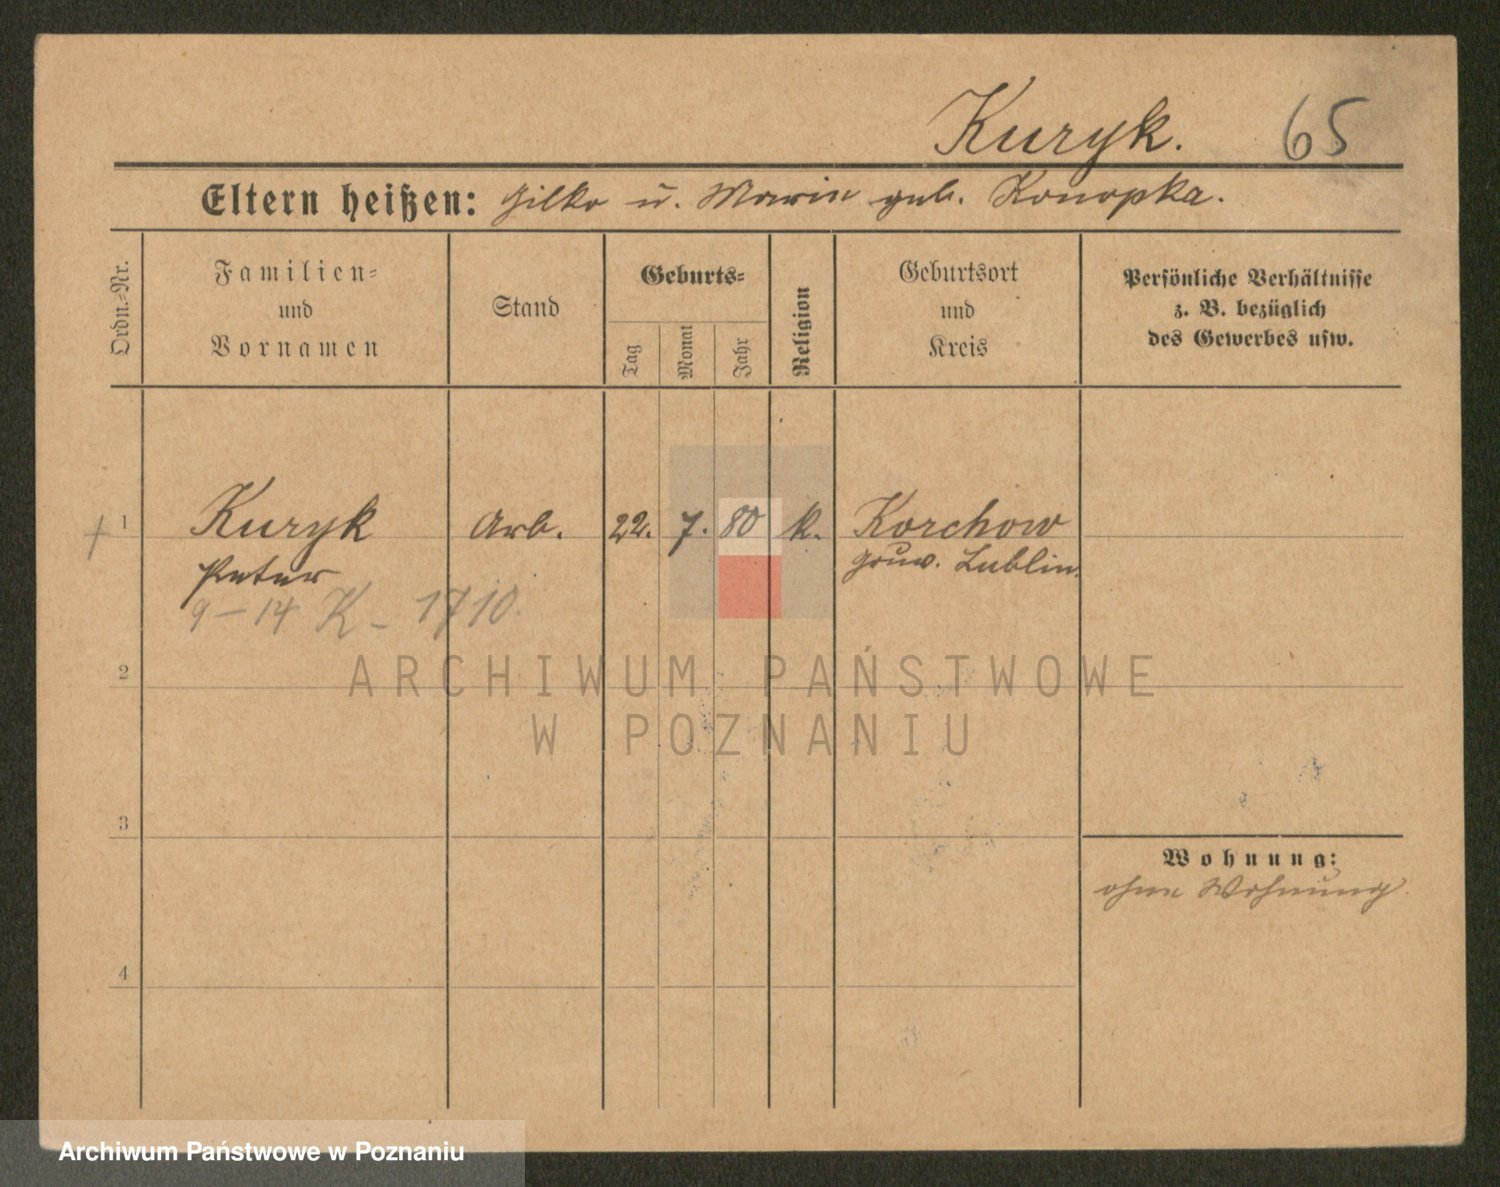 Kuryk. 65
Eltern heißen: Hilko u. Marie geb. Konopka.
Ordn.-Nr.
Familien-
und
Vornamen
Stand
Geburts-
Tag
Monat
Jahr
Religion
Geburtsort
und
Kreis
Persönliche Verhältnisse
z. B. bezüglich
des Gewerbes usw.
+ 1 Kuryk Arb. 22. 7. 80 k. Korchow
Peter gouv. Lublin.
9-14 K- 1710.
ARCHIWUM PAŃSTWOWE
2
W POZNANIU
3
Wohnung:
ohne Wohnung.
4
Archiwum Państwowe w Poznaniu